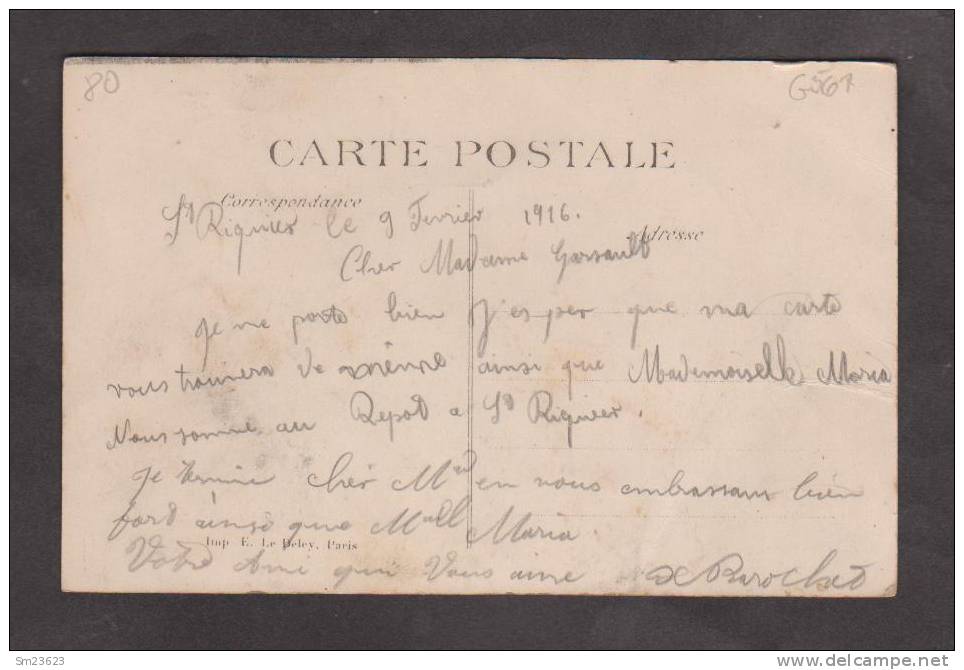 80
CARTE POSTALE
Correspondance
Adresse
St Riquier le 9 Fevrier 1916.
Cher Madame Garsault
Je me porte bien J'esper que ma carte
vous trouvera de mème ainsi que Mademoiselle Maria
Nous somme au Repot a St Riquier.
Je termine Cher Md en vous embrassant bien
fort ainsi que Mell Maria
Imp. E. Le Deley, Paris
Votre Ami qui Vous aime
Sm23623
www.delcampe.net